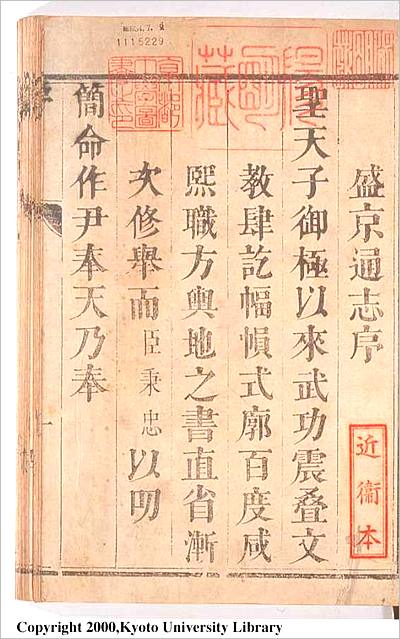 盛京通志序
聖天子御極以來武功震疊文
教肆訖幅慎式廓百度咸
熙職方輿地之書直省漸
次修舉而臣秉忠以叨
簡命作尹奉天乃奉
近衞本
1115229
Copyright 2000,Kyoto University Library